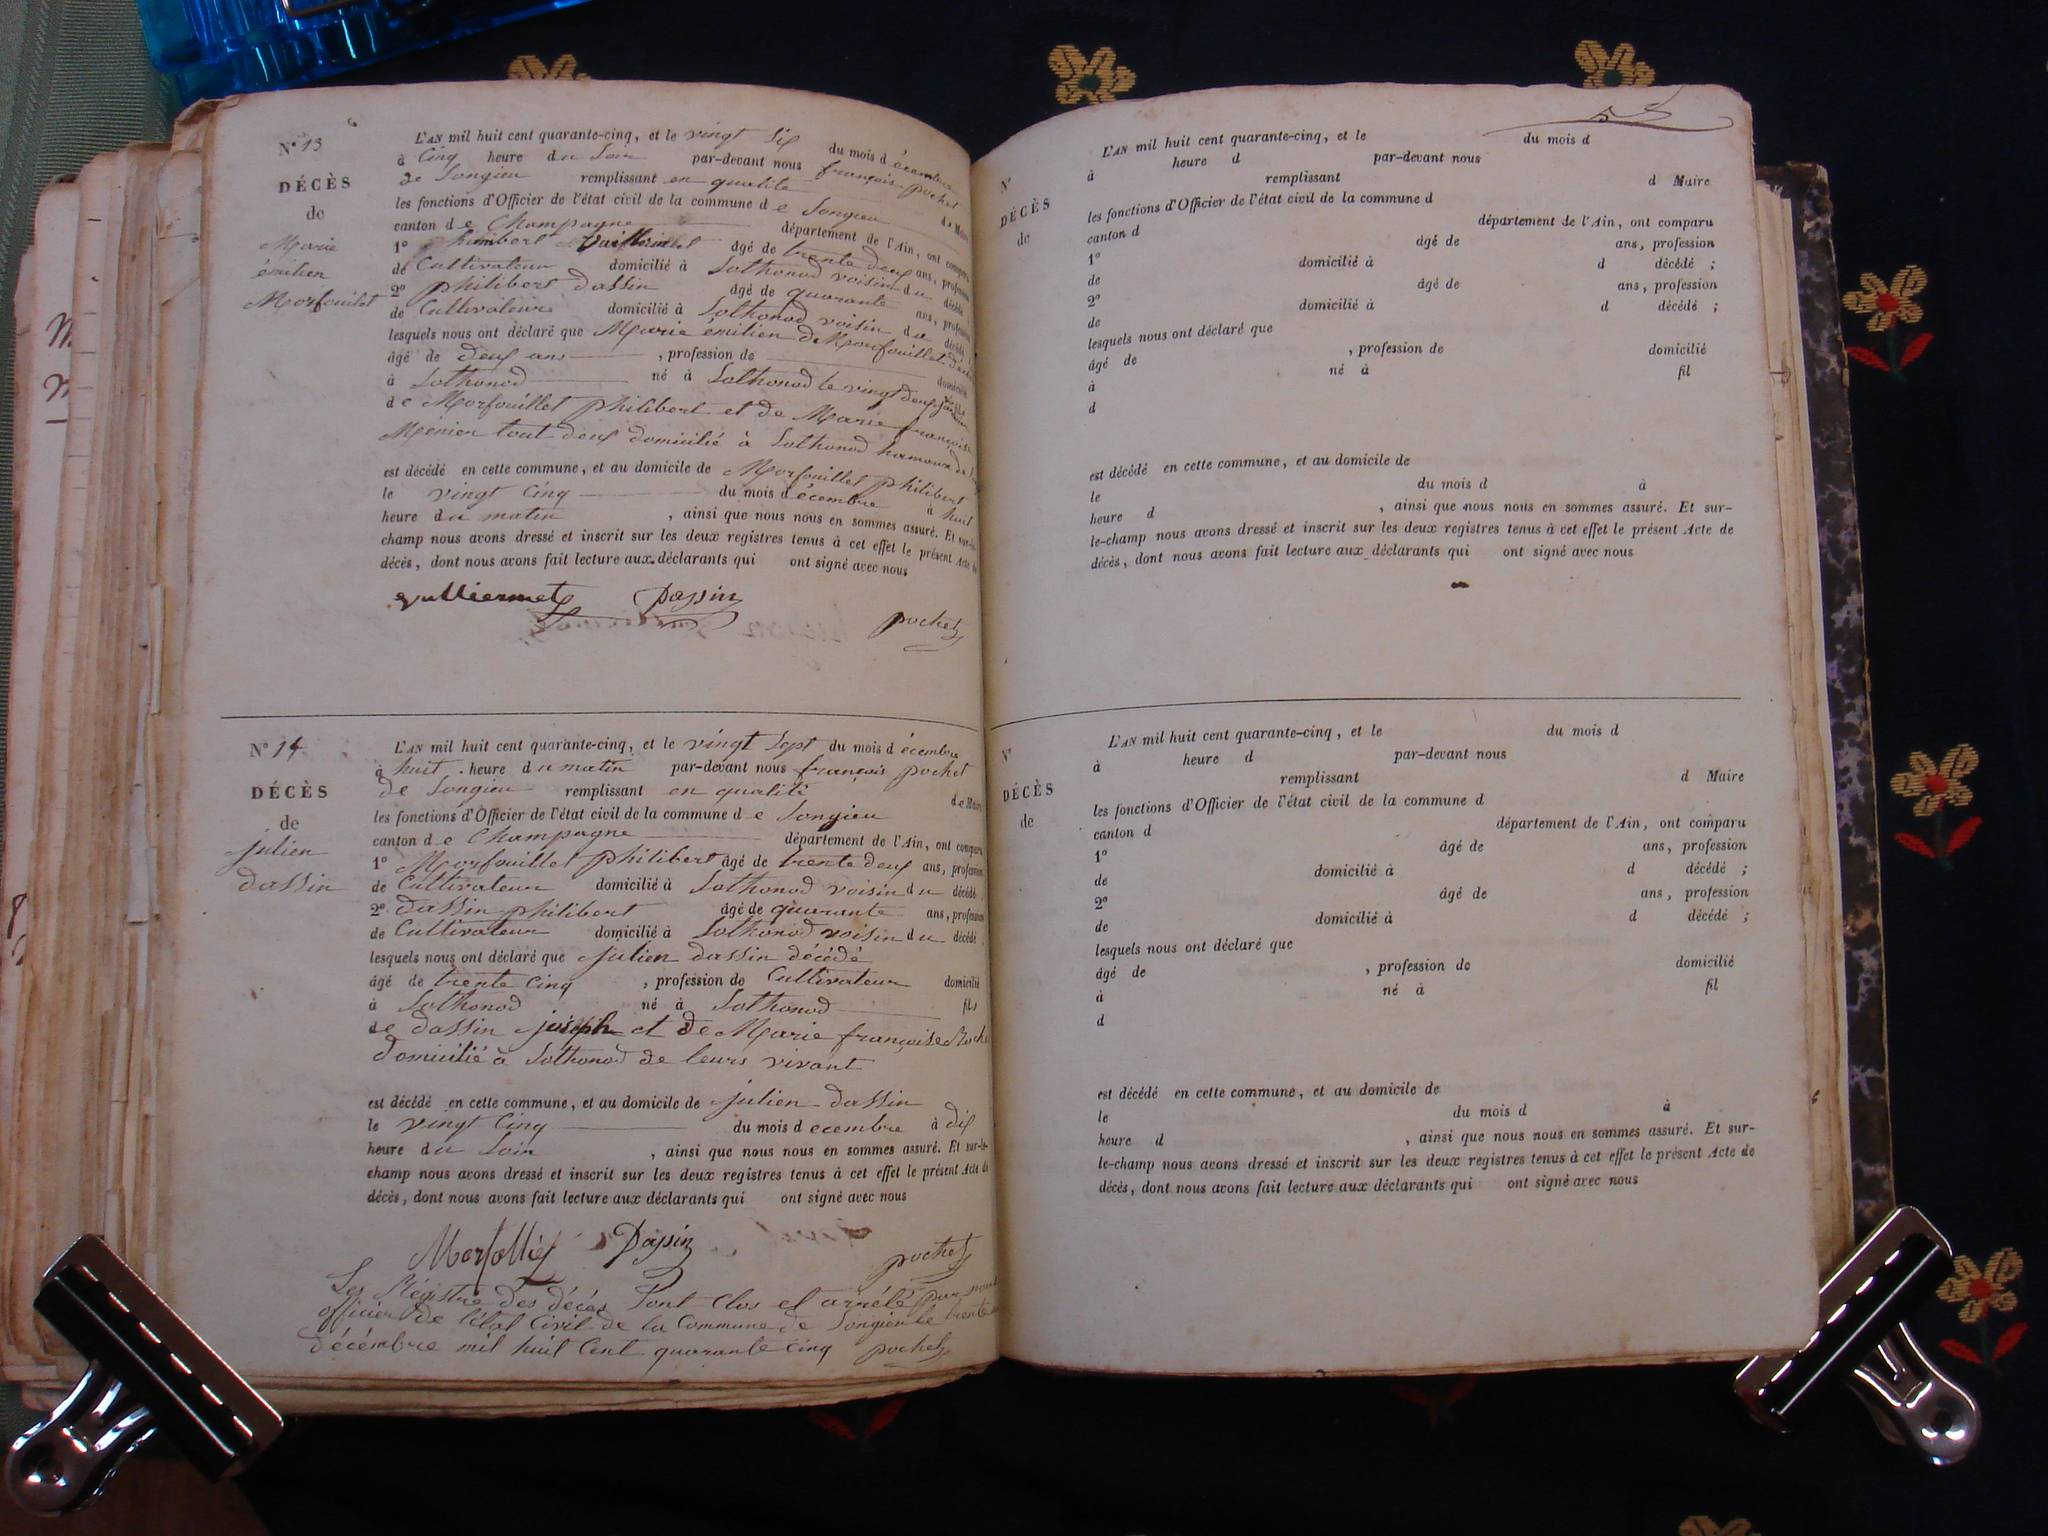 N° 13
DÉCÈS
de
Marie
émilien
Morfouillet
L'AN mil huit cent quarante-cinq, et le vingt six du mois décembre
à cinq heure du soir par-devant nous françois pochet
de Songieu remplissant en qualité de Maire
les fonctions d'Officier de l'état civil de la commune de Songieu
canton de Champagne département de l'Ain, ont comparu
1° âgé de trente deux ans, profession
de Cultivateur domicilié à Sothonod voisin du décédé
2° philibert dassin âgé de quarante ans, profession
de Cultivateur domicilié à Sothonod voisin de décédé
lesquels nous ont déclaré que Marie émilien de Morfouillet
âgé de deux ans, profession de domicilié
à Sothonod né à Sothonod le vingt deux
de Morfouillet philibert et de Marie françoise
Menier tout deux domicilié à Sothonod hamaux de
est décédé en cette commune, et au domicile de Morfouillet philibert
le vingt cinq du mois décembre à huit
heure du matin, ainsi que nous nous en sommes assuré. Et sur-le-
champ nous avons dressé et inscrit sur les deux registres tenus à cet effet le présent Acte de
décès, dont nous avons fait lecture aux déclarants qui ont signé avec nous
gulliermet Dassin pochet
N° 14
DÉCÈS
de
julien
dassin
L'AN mil huit cent quarante-cinq, et le vingt sept du mois décembre
à huit heure du matin par-devant nous françois pochet
de Songieu remplissant en qualité de Maire
les fonctions d'Officier de l'état civil de la commune de Songieu
canton de Champagne département de l'Ain, ont comparu
1° Morfouillet philibert âgé de trente deux ans, profession
de Cultivateur domicilié à Sothonod voisin du décédé
2° dassin philibert âgé de quarante ans, profession
de Cultivateur domicilié à Sothonod voisin du décédé
lesquels nous ont déclaré que julien dassin décédé
âgé de trente cinq, profession de Cultivateur domicilié
à Sothonod né à Sothonod fils
de dassin joseph et de Marie françoise Roche
domicilié à Sothonod de leurs vivant
est décédé en cette commune, et au domicile de julien dassin
le vingt cinq du mois decembre à dix
heure du soir, ainsi que nous nous en sommes assuré. Et sur-le-
champ nous avons dressé et inscrit sur les deux registres tenus à cet effet le présent Acte de
décès, dont nous avons fait lecture aux déclarants qui ont signé avec nous
Dassin pochet
Les Régistre des décés Sont Clos et arrété par nous
officier de l'état Civil de la Commune de Songieu le trente
décémbre mil huit Cent quarante cinq pochet
N°
DÉCÈS
de
L'AN mil huit cent quarante-cinq, et le du mois d
à heure d par-devant nous
remplissant d Maire
les fonctions d'Officier de l'état civil de la commune d
canton d département de l'Ain, ont comparu
1° âgé de ans, profession
de domicilié à d décédé ;
2° âgé de ans, profession
de domicilié à d décédé ;
lesquels nous ont déclaré que
âgé de , profession de domicilié
à né à fil
d
est décédé en cette commune, et au domicile de
le du mois d à
heure d , ainsi que nous nous en sommes assuré. Et sur-
le-champ nous avons dressé et inscrit sur les deux registres tenus à cet effet le présent Acte de
décès, dont nous avons fait lecture aux déclarants qui ont signé avec nous
N°
DÉCÈS
de
L'AN mil huit cent quarante-cinq, et le du mois d
à heure d par-devant nous
remplissant d Maire
les fonctions d'Officier de l'état civil de la commune d
canton d département de l'Ain, ont comparu
1° âgé de ans, profession
de domicilié à d décédé ;
2° âgé de ans, profession
de domicilié à d décédé ;
lesquels nous ont déclaré que
âgé de , profession de domicilié
à né à fil
d
est décédé en cette commune, et au domicile de
le du mois d à
heure d , ainsi que nous nous en sommes assuré. Et sur-
le-champ nous avons dressé et inscrit sur les deux registres tenus à cet effet le présent Acte de
décès, dont nous avons fait lecture aux déclarants qui ont signé avec nous